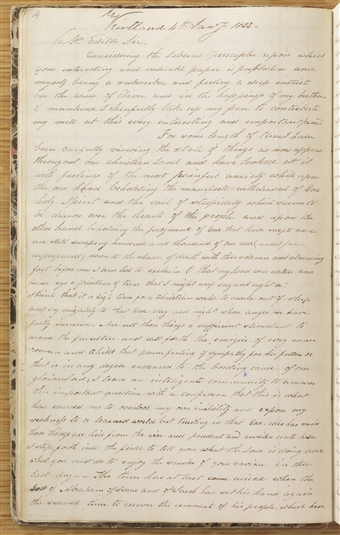 Kortland 4th Jan'y 1833
Mr. Editor Sir,
Considering the liberal principles upon which
your interesting and valuable paper is published and
myself being a subscriber and feeling a deep interest
in the of Zion and in the happiness of my brethren
of mankind I cheerfully take up my pen to contribute
my mite at this very interesting and important period
For some length of time I have
been carefully viewing the state of things as now appear
throughout our christian land and have looked at it
with feelings of the most painful anxiety while upon
the one hand beholding the manifest withdrawal of Gods
holy Spirit and the vail of stupidity which seems to
be drawn over the hearts of the people and upon the
other hand beholding the judgments of God that have swept and
are still sweeping hundreds and thousands of our race and I fear
unprepared down to the shades of death with this solemn and alarming
fact before me I am led to exclaim O that my head were waters and
mine eyes a fountain of tears that I might weep day and night
I think that it is high time for a christian world to awake out of sleep
and cry mightely to that God day and night whose anger we have
justly incured. Are not these things a sufficient stimulant to
arouse the faculties and call forth the energies of every man
woman and child that possesses feelings of sympathy for his fellow or
that is in any degree endeared to the bording cause of our
glorious Lord; I leave an intelligent community to answer
this important question with a confession that this is what
has caused me to overlook my own inability and expose my
weakness to a learned world but trusting in that God who has said
these things are hid from the wise and prudent and revealed unto babes
I step forth into the field to tell you what the Lord is doing and
what you must do to enjoy the smiles of your saviour in these
last day- The time has at last come arived when the
God of Abraham of Isaac and of Jacob has set his hand again
the second time to recover the remnants of his people which have